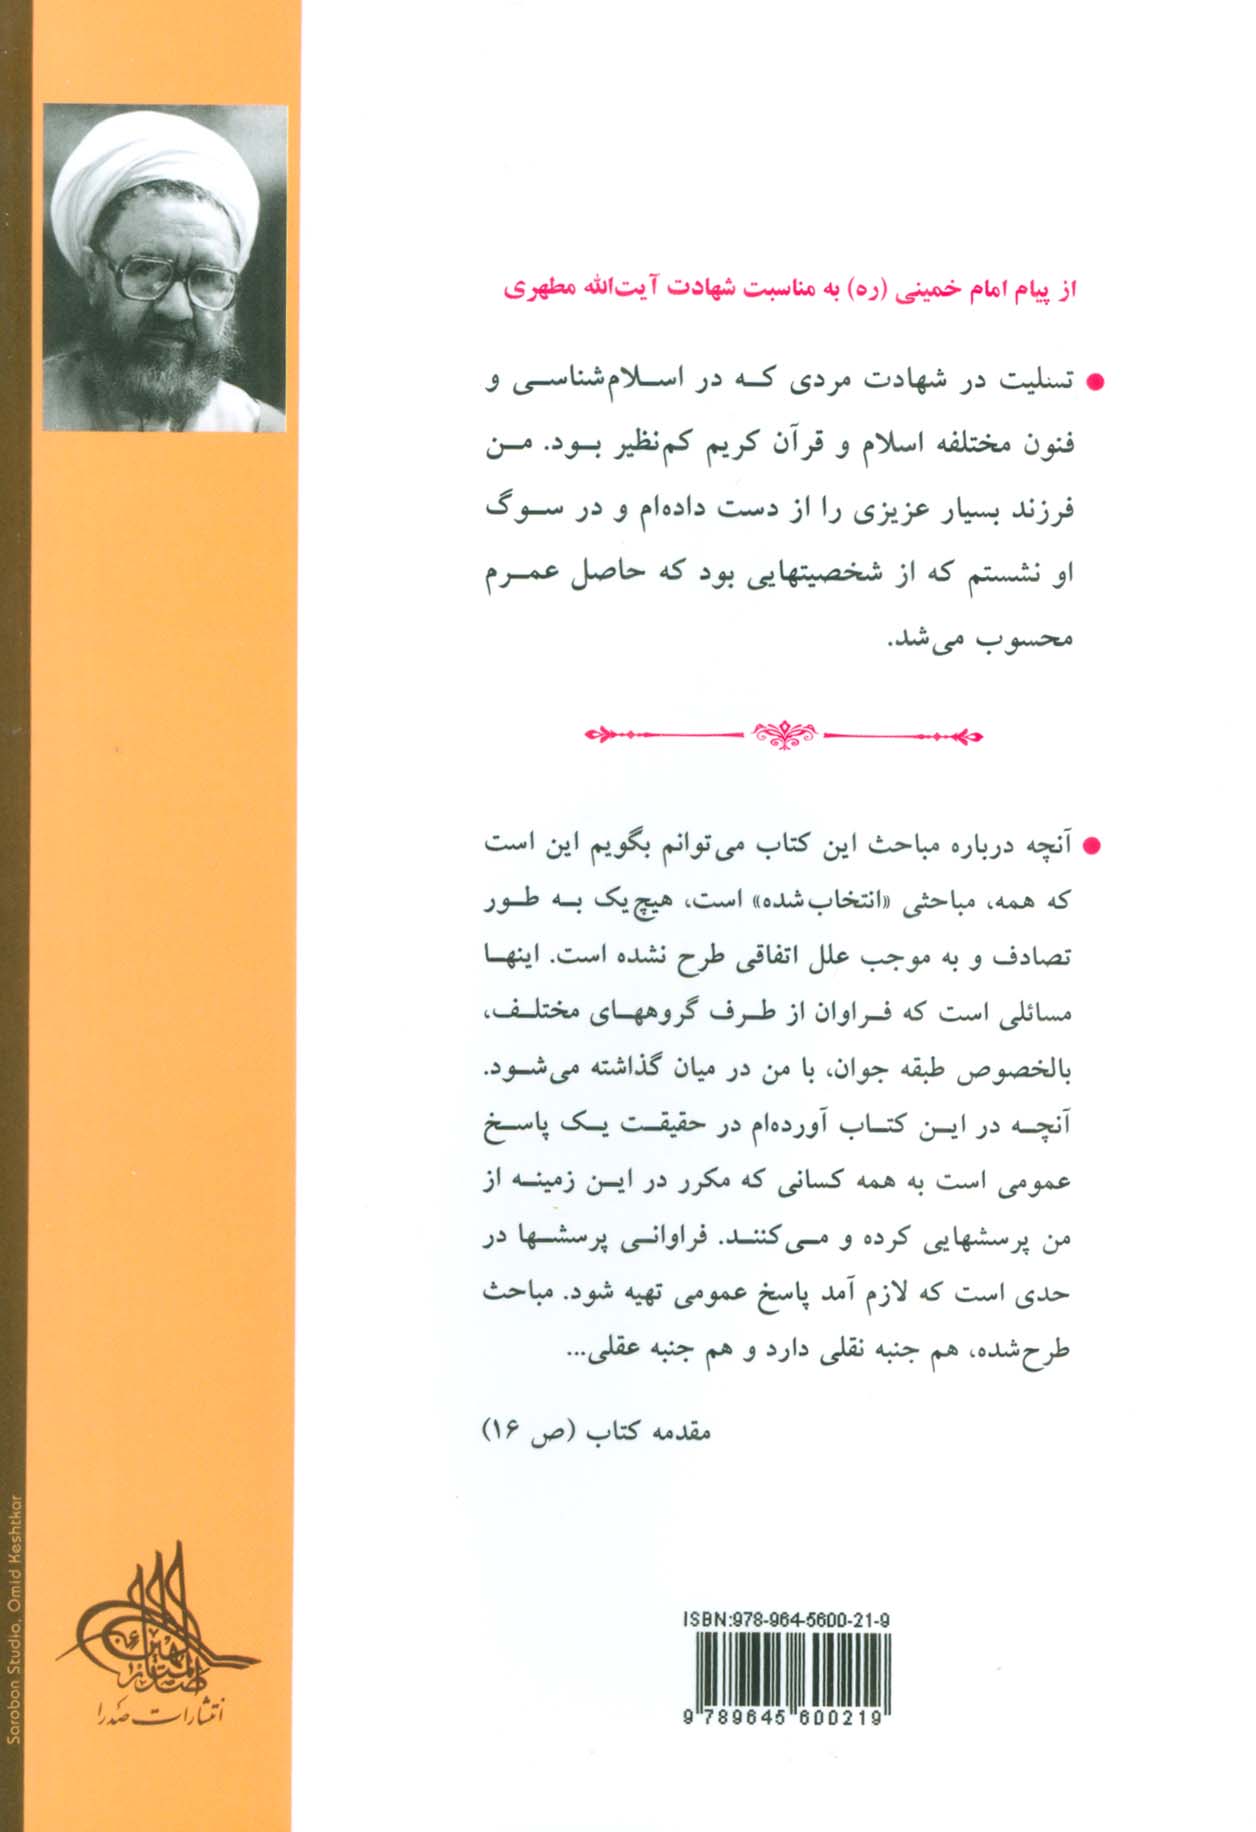 از پیام امام خمینی (ره) به مناسبت شهادت آیت‌الله مطهری
● تسلیت در شهادت مردی که در اسلام‌شناسی و
فنون مختلفه اسلام و قرآن کریم کم‌نظیر بود. من
فرزند بسیار عزیزی را از دست داده‌ام و در سوگ
او نشستم که از شخصیتهایی بود که حاصل عمرم
محسوب می‌شد.
● آنچه درباره مباحث این کتاب می‌توانم بگویم این است
که همه، مباحثی «انتخاب‌شده» است، هیچ‌یک به طور
تصادف و به موجب علل اتفاقی طرح نشده است. اینها
مسائلی است که فراوان از طرف گروههای مختلف،
بالخصوص طبقه جوان، با من در میان گذاشته می‌شود.
آنچه در این کتاب آورده‌ام در حقیقت یک پاسخ
عمومی است به همه کسانی که مکرر در این زمینه از
من پرسشهایی کرده و می‌کنند. فراوانی پرسشها در
حدی است که لازم آمد پاسخ عمومی تهیه شود. مباحث
طرح‌شده، هم جنبه نقلی دارد و هم جنبه عقلی...
مقدمه کتاب (ص ۱۶)
ISBN:978-964-5600-21-9
9 789645 600219
انتشارات صدرا
Sarobon Studio, Omid Keshtkar